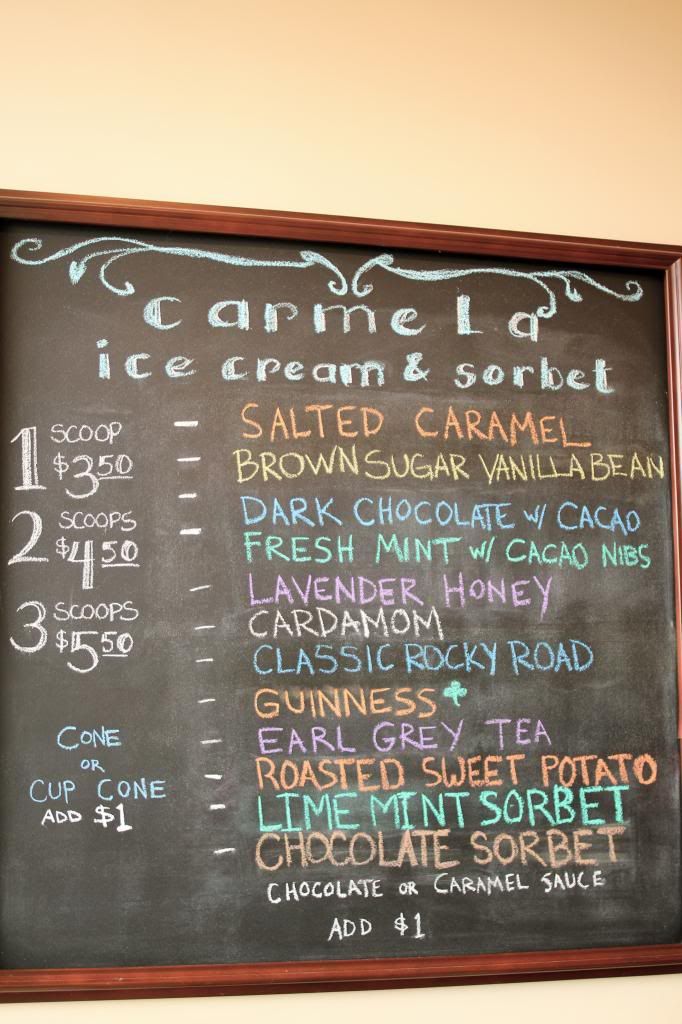 carmela
ice cream & sorbet
1 SCOOP
$3.50
2 SCOOPS
$4.50
3 SCOOPS
$5.50
CONE
OR
CUP CONE
ADD $1
- SALTED CARAMEL
- BROWN SUGAR VANILLA BEAN
- DARK CHOCOLATE w/ CACAO
- FRESH MINT w/ CACAO NIBS
- LAVENDER HONEY
- CARDAMOM
- CLASSIC ROCKY ROAD
- GUINNESS
- EARL GREY TEA
- ROASTED SWEET POTATO
- LIME MINT SORBET
- CHOCOLATE SORBET
CHOCOLATE OR CARAMEL SAUCE
ADD $1